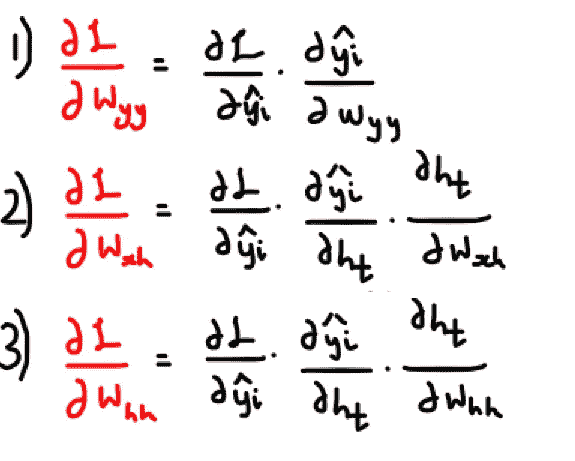 1) ∂L/∂W_yy = ∂L/∂ŷ_i · ∂ŷ_i/∂W_yy
2) ∂L/∂W_xh = ∂L/∂ŷ_i · ∂ŷ_i/∂h_t · ∂h_t/∂W_xh
3) ∂L/∂W_hh = ∂L/∂ŷ_i · ∂ŷ_i/∂h_t · ∂h_t/∂W_hh